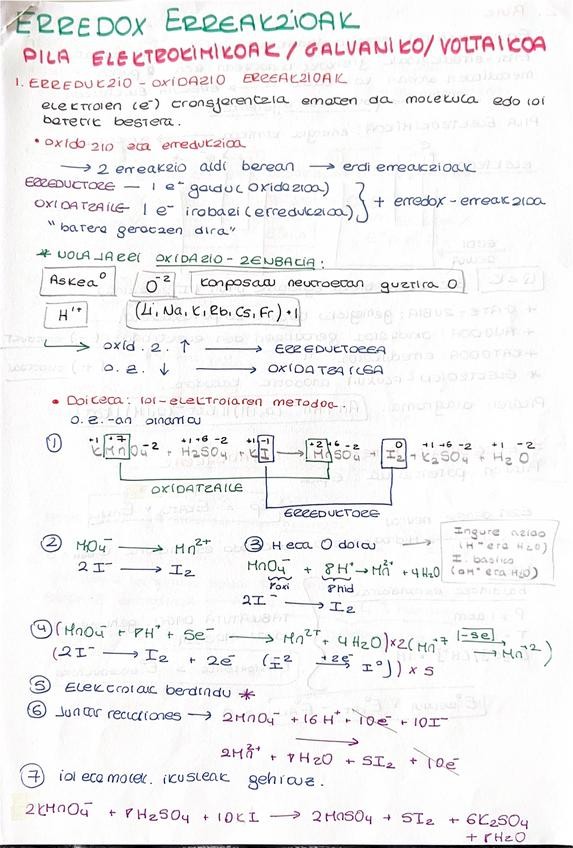 ERREDOX ERREAKZIOAK
PILA ELEKTROKIMIKOAK / GALVANIKO / VOLTAIKOA
1. ERREDUKZIO - OXIDAZIO ERREAKZIOAK
elektroien (e⁻) transferentzia ematen da molekula edo ioi
batetik bestera.
• oxidazio eta erredukzioa
→ 2 erreakzio aldi berean → erdi erreakzioak
ERREDUKTORE - 1 e⁻ galdu (oxidazioa)
OXIDATZAILE - 1 e⁻ irabazi (erredukzioa) } + erredox - erreakzioa
"batera gertatzen dira"
* NOLA JARRI OXIDAZIO - ZENBAKIA:
Askea⁰ O⁻² konposatu neutroetan guztira 0
H¹⁺ (Li, Na, K, Rb, Cs, Fr) +1
→ oxid. z. ↑ → ERREDUKTOREA
o. z. ↓ → OXIDATZAILEA
• Doiketa: ioi-elektroiaren metodoa.
o.z.-an oinarritu
① +1 +7 -2 +1 +6 -2 +1 -1 +2 +6 -2 0 +1 +6 -2 +1 -2
KMnO₄ + H₂SO₄ + KI → MnSO₄ + I₂ + K₂SO₄ + H₂O
OXIDATZAILE
ERREDUKTORE
② MnO₄⁻ → Mn²⁺
2I⁻ → I₂
③ H eta O doitu →
Ingure azido
(H⁺ eta H₂O)
I. basiko
(OH⁻ eta H₂O)
MnO₄⁻ + 8H⁺ → Mn²⁺ + 4H₂O
2I⁻ → I₂
④ (MnO₄⁻ + 8H⁺ + 5e⁻ → Mn²⁺ + 4H₂O) × 2 (Mn⁺⁷ |-5e| → Mn⁺²)
(2I⁻ → I₂ + 2e⁻ ) × 5
⑤ Elektroiak berdindu *
⑥ Juntar reacciones → 2MnO₄⁻ + 16H⁺ + 10e⁻ + 10I⁻
→
2Mn²⁺ + 8H₂O + 5I₂ + 10e⁻
⑦ ioi eta molek. ikusleak gehituz.
2KMnO₄⁻ + 8H₂SO₄ + 10KI → 2MnSO₄ + 5I₂ + 6K₂SO₄
+ 8H₂O